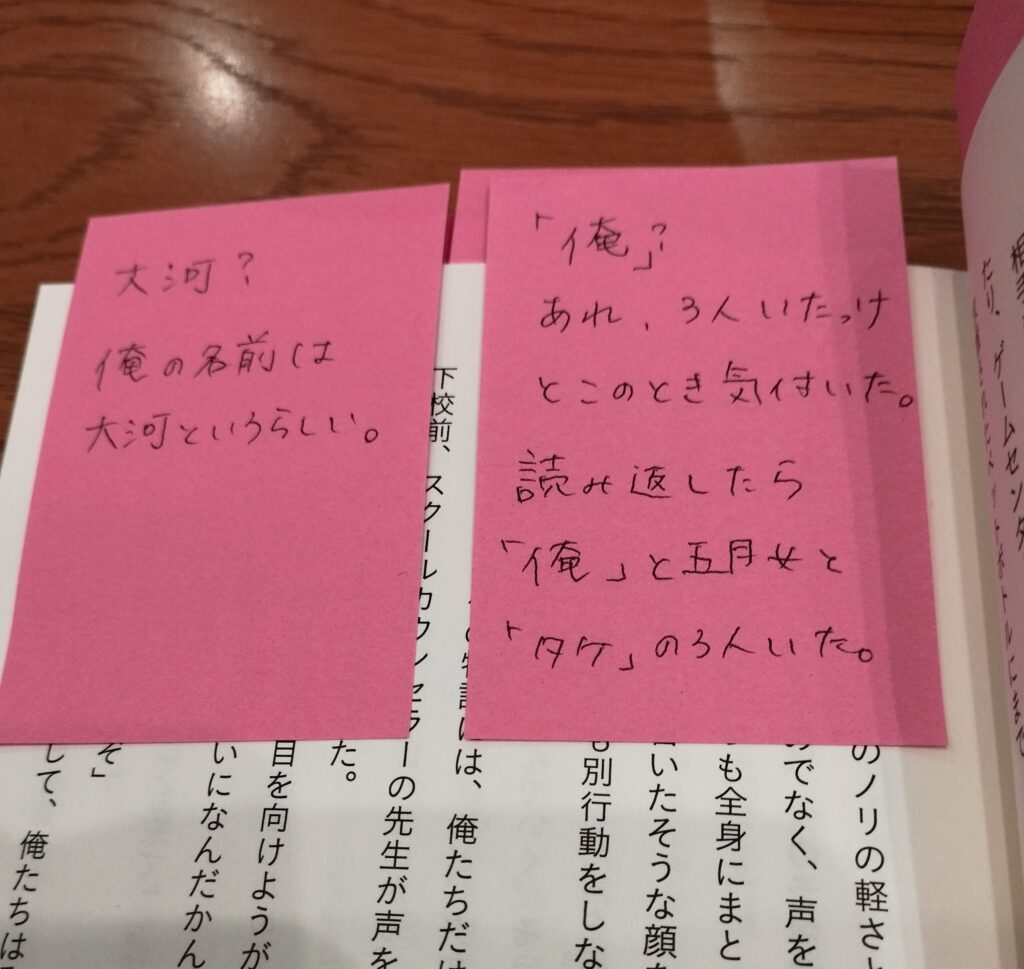 「俺」?
あれ、3人いたっけ
とこのとき気付いた。
読み返したら
「俺」と五月女と
「タケ」の3人いた。
大河?
俺の名前は
大河というらしい。
たり、ゲームセンタ
のノリの軽さ
のでなく、声を
も全身にまと
いたそうな顔
別行動をしな
は、俺たちだけ
下校前、スクールカウンセラーの先生が声を
た。
目を向けようが
いになんだかん
そ」
して、俺たちは